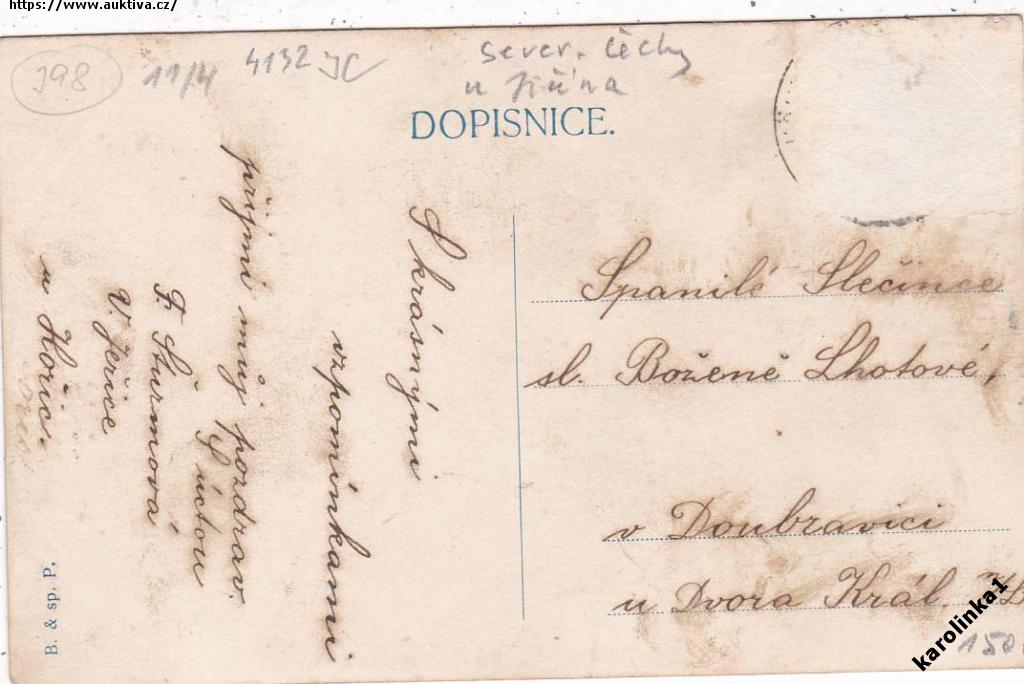 https://www.auktiva.cz/
398
11/4
4132
sever. Čechy
u Jičína
DOPISNICE.
S krásnými
vzpomínkami
přijmi můj pozdrav.
S úctou
F. Šturmová
V. Jeřice
u Hořic.
Spanilé Slečince
sl. Boženě Lhotové,
v Doubravici
u Dvora Král.
B. & sp. P.
150
karolinka1